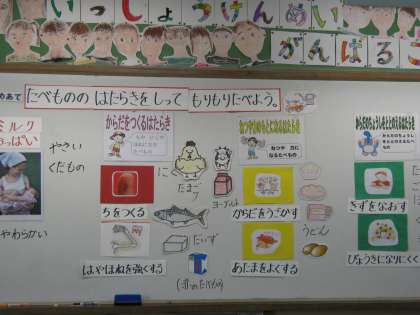 いっしょうけんめい
がんばるこ
めあて
たべものの はたらきを しって もりもりたべよう。
ミルク
やわらかい
やさい
くだもの
からだをつくるはたらき
ちをつくる
はやほねを強くする
に
たまご
ヨーグルト
だいず
ねつや力のもとになるはたらき
ねつや 力に
なるたべもの
からだをうごかす
あたまをよくする
うどん
からだのちょうしをととのえるはたらき
きずをなおす
びょうきになりにくく